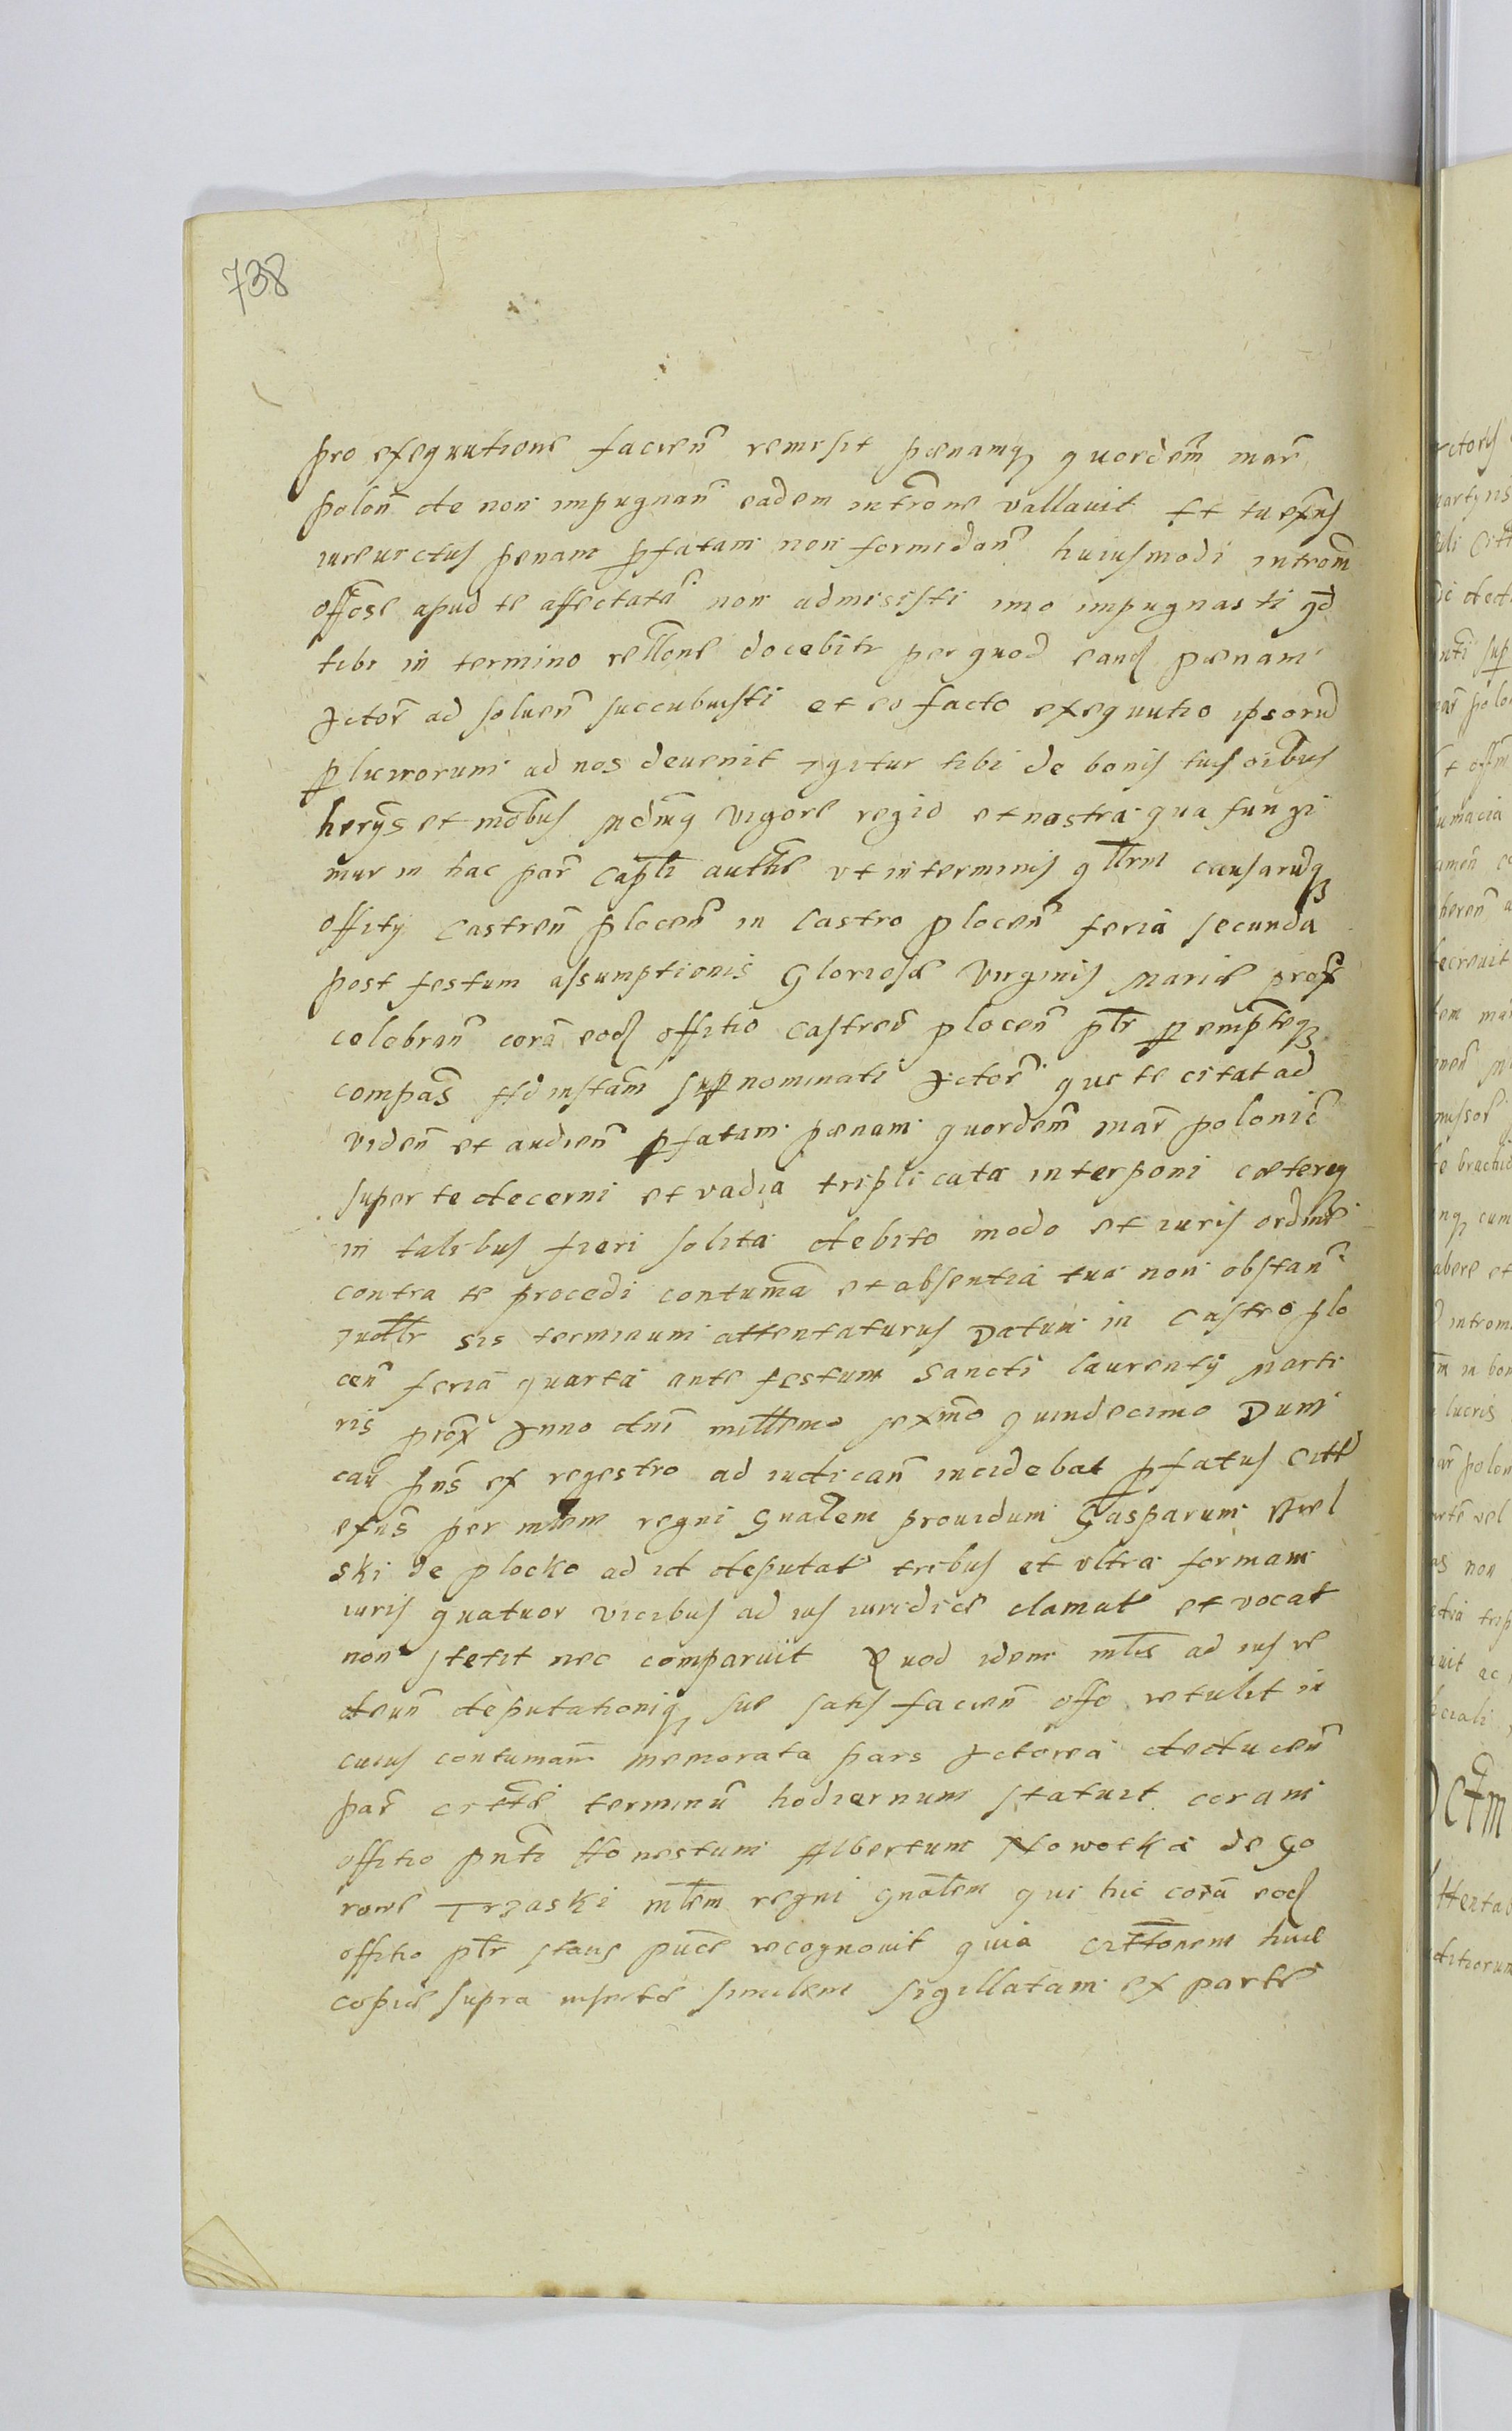 738
pro exequutione facien remisit pœnamq quordem mar
polon de non impugnan eadem introne vallavit Et tu exns
iurevictus penam pfatam non formidan huiusmodi introm
offose apud te affectata non admisisti imo impugnasti qd
tibi in termino rellone docebitr per quod eand pœnam
Actor ad soluen succubuisti et eo facto exequutio ipsorū
p lucrorum ad nos devenit igitur tibi de bonis tuis oibus
herys et mobus Mdmq vigore regio et nostra qua fungi
mur in hac par Capli authe ut in terminis qllrm causarūq
offity Castren plocen in Castro plocen feria secunda
post festum assumptionis Gloriosæ Virginis Mariæ prox
celebran corā eod offitio castren plocen plr peremptieq
compas Ad instam supnominati Actor qui te citat ad
viden et audien pfatam pœnam quordem mar polonic
super te decerni et vadia triplicata interponi cœteraq
in talibus fieri solita debito modo et iuris ordine
contra te procedi contuma et absentia tua non obstan
Judlr sis terminum attentaturus Datum in Castro plo
cen feria quarta ante festum Sancti laurentÿ Marti
ris prox Anno dni millemo sexmo quindecimo Dum
cau pns ex regestro ad iudican incidebat pfatus citt
exns per mlem regni Gnalem providum Gasparum
ski de plocko ad id deputat tribus et ultra formam
iuris quatuor vicibus ad ius iuridice clamat et vocat
non stetit nec comparuit Quod idem mlis ad ius re
deun deputationiq suæ satis facien offo retulit in
cuius contumam memorata pars Actorea deducen
par cittæ terminū hodiernum statuit coram
offitio pnti Honestum Albertum Nowotka de Go
rowe Trzaski mlem regni gnalem qui hic corā eod
offitio plr stans puce recognovit quia cittonem huic
copiæ supra insertæ similem sigillatam ex parte